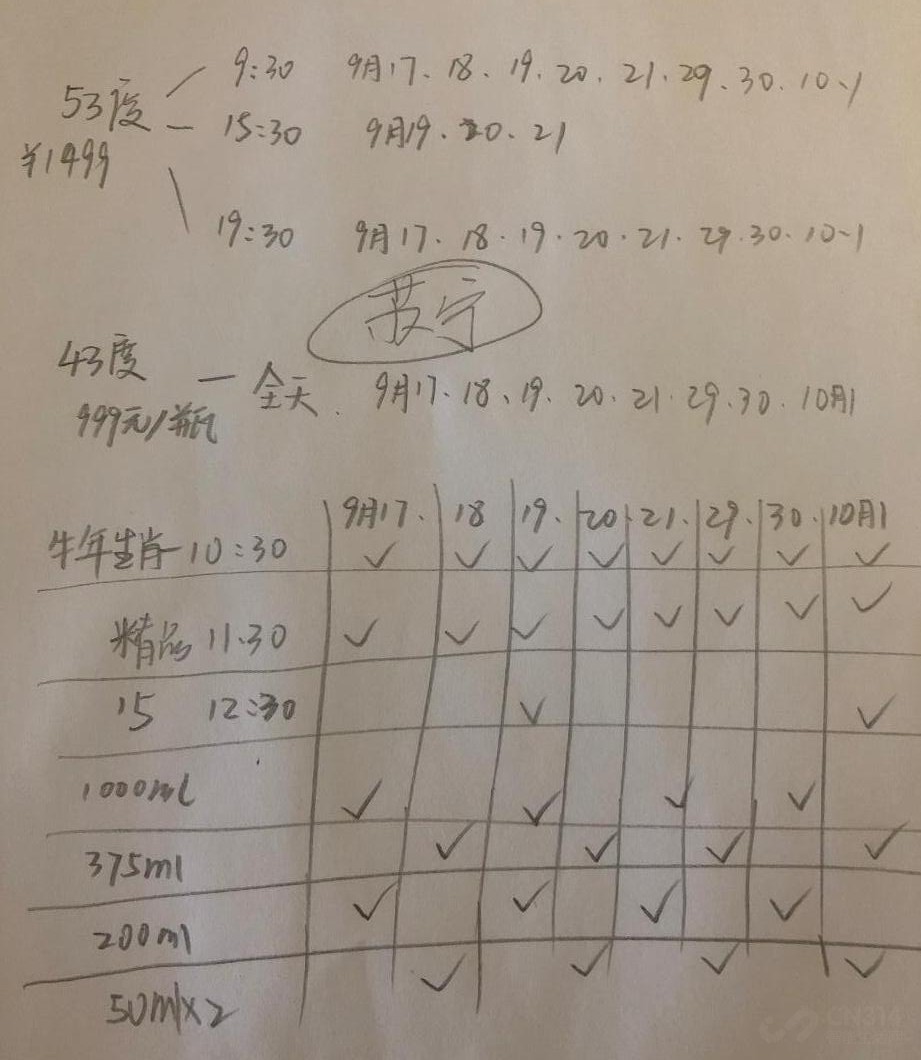 9:30 9月17、18、19、20、21、29、30、10-1
53度 — 15:30 9月19、20、21
¥1499
19:30 9月17、18、19、20、21、29、30、10-1
苏宁
43度 — 全天 9月17、18、19、20、21、29、30、10月1
999元/瓶
9月17. 18 19. 20 21. 29. 30. 10月1
牛年生肖 10:30 ✓ ✓ ✓ ✓ ✓ ✓ ✓ ✓
精品 11.30 ✓ ✓ ✓ ✓ ✓ ✓ ✓ ✓
15 12:30 ✓ ✓
1000ml ✓ ✓ ✓ ✓
375ml ✓ ✓ ✓ ✓
200ml ✓ ✓ ✓ ✓
50ml×2 ✓ ✓ ✓ ✓
CN314